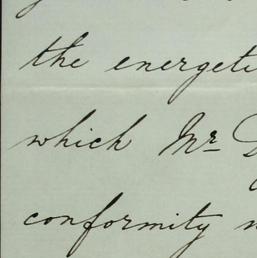 the energeti
which Mr
conformity